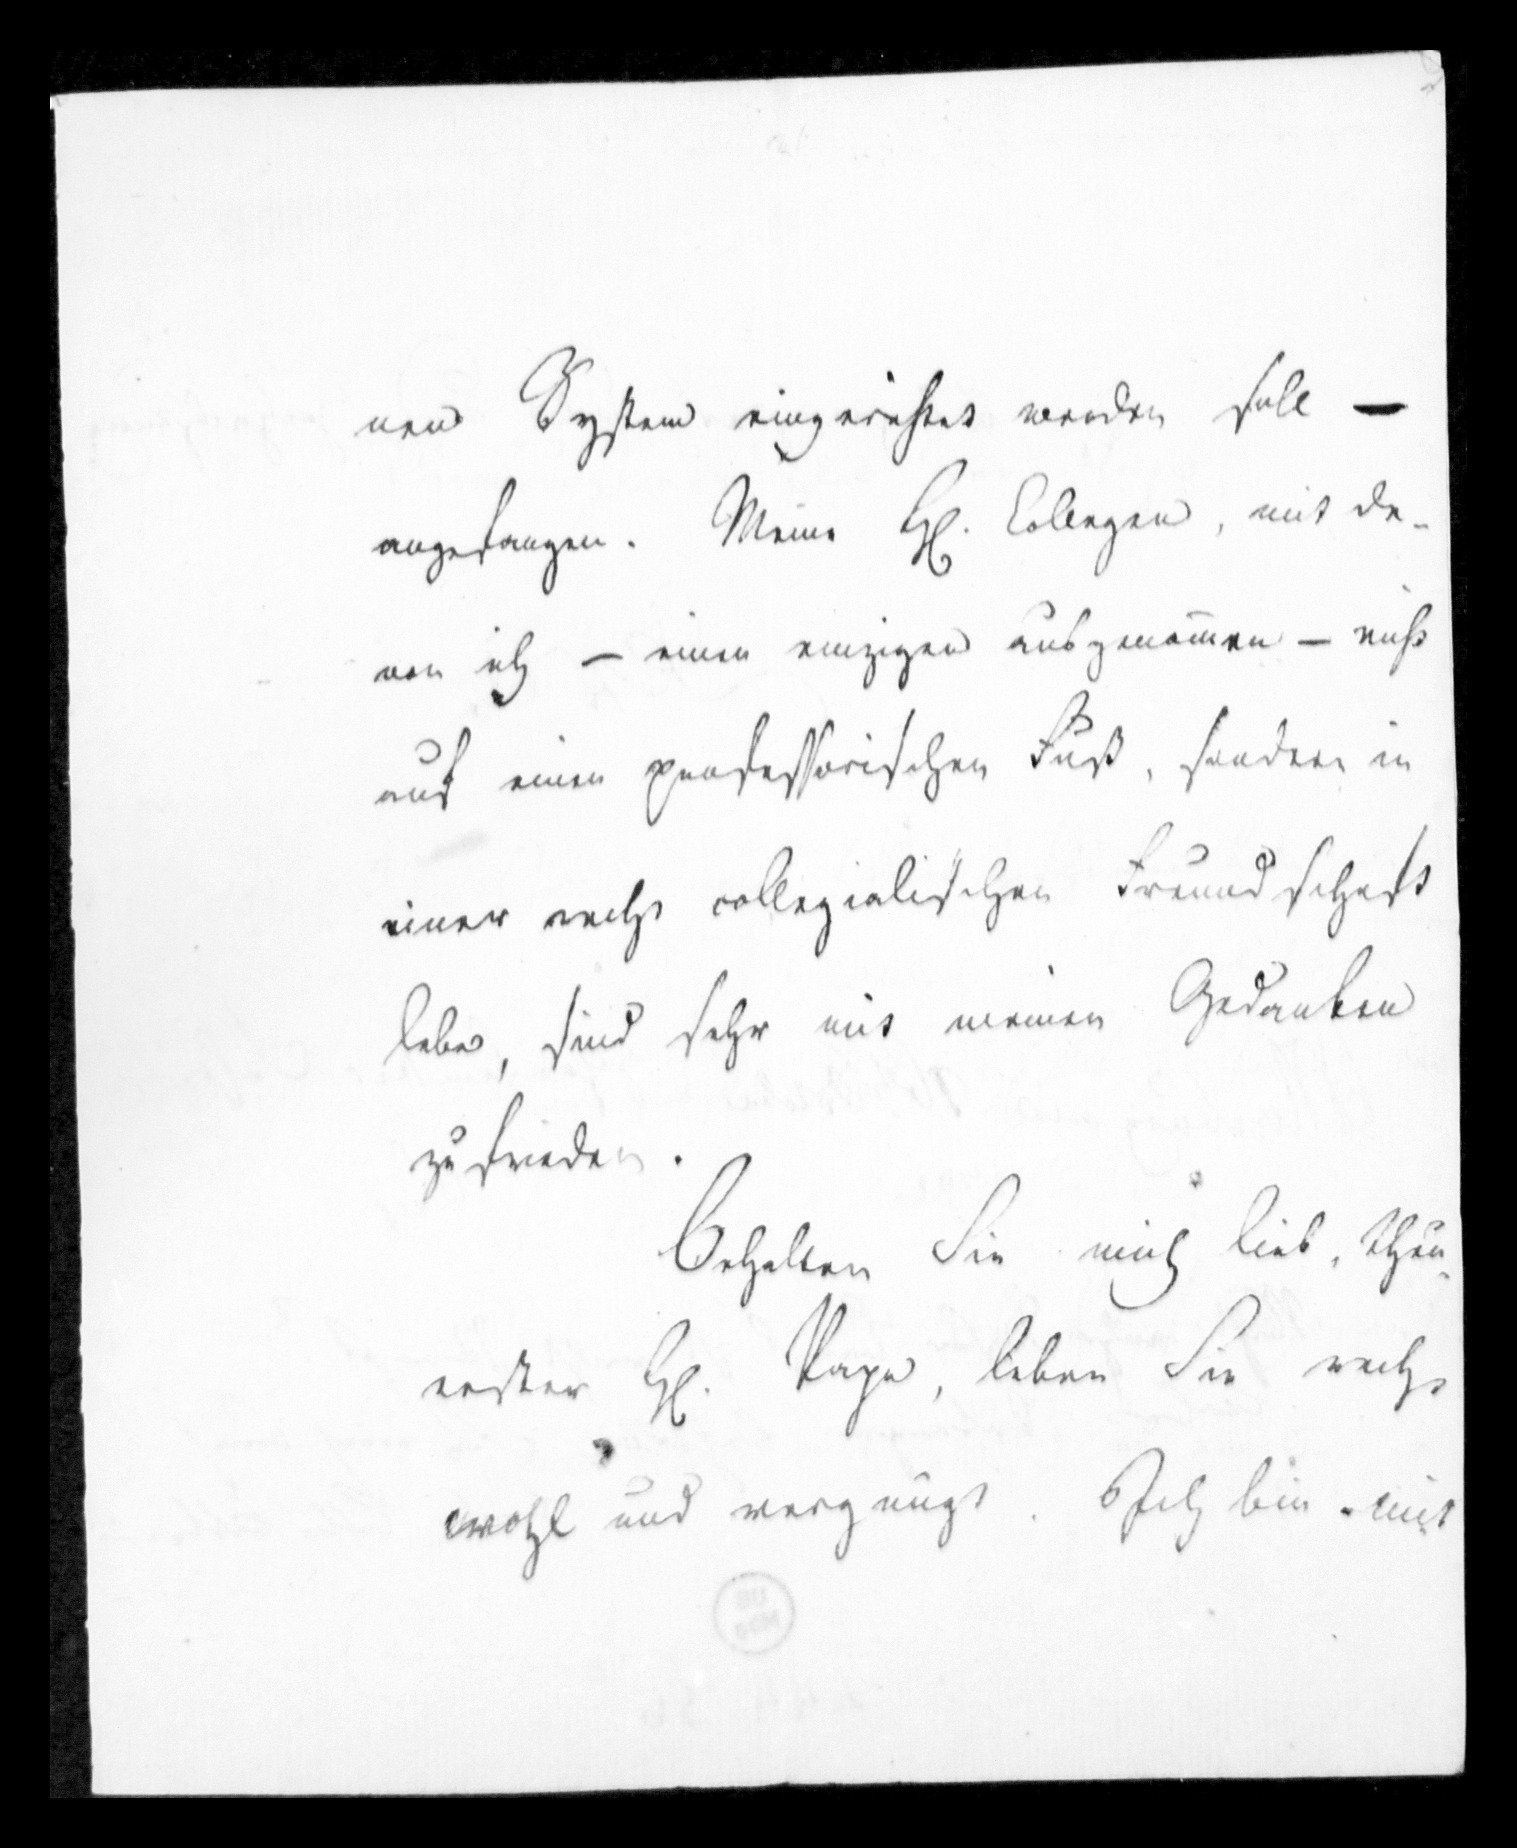 nen System eingerichtet werden soll —
angefangen. Meine H. Collegen, mit de-
nen ich — einen einzigen ausgenommen — nicht
auf einen professorischen Fuß, sondern in
einer recht collegialischen Freundschaft
lebe, sind sehr mit meinen Gedanken
zufrieden.
Behalten Sie mich lieb, theu-
erster H. Pape, leben Sie recht
wohl und vergnügt. Ich bin mit